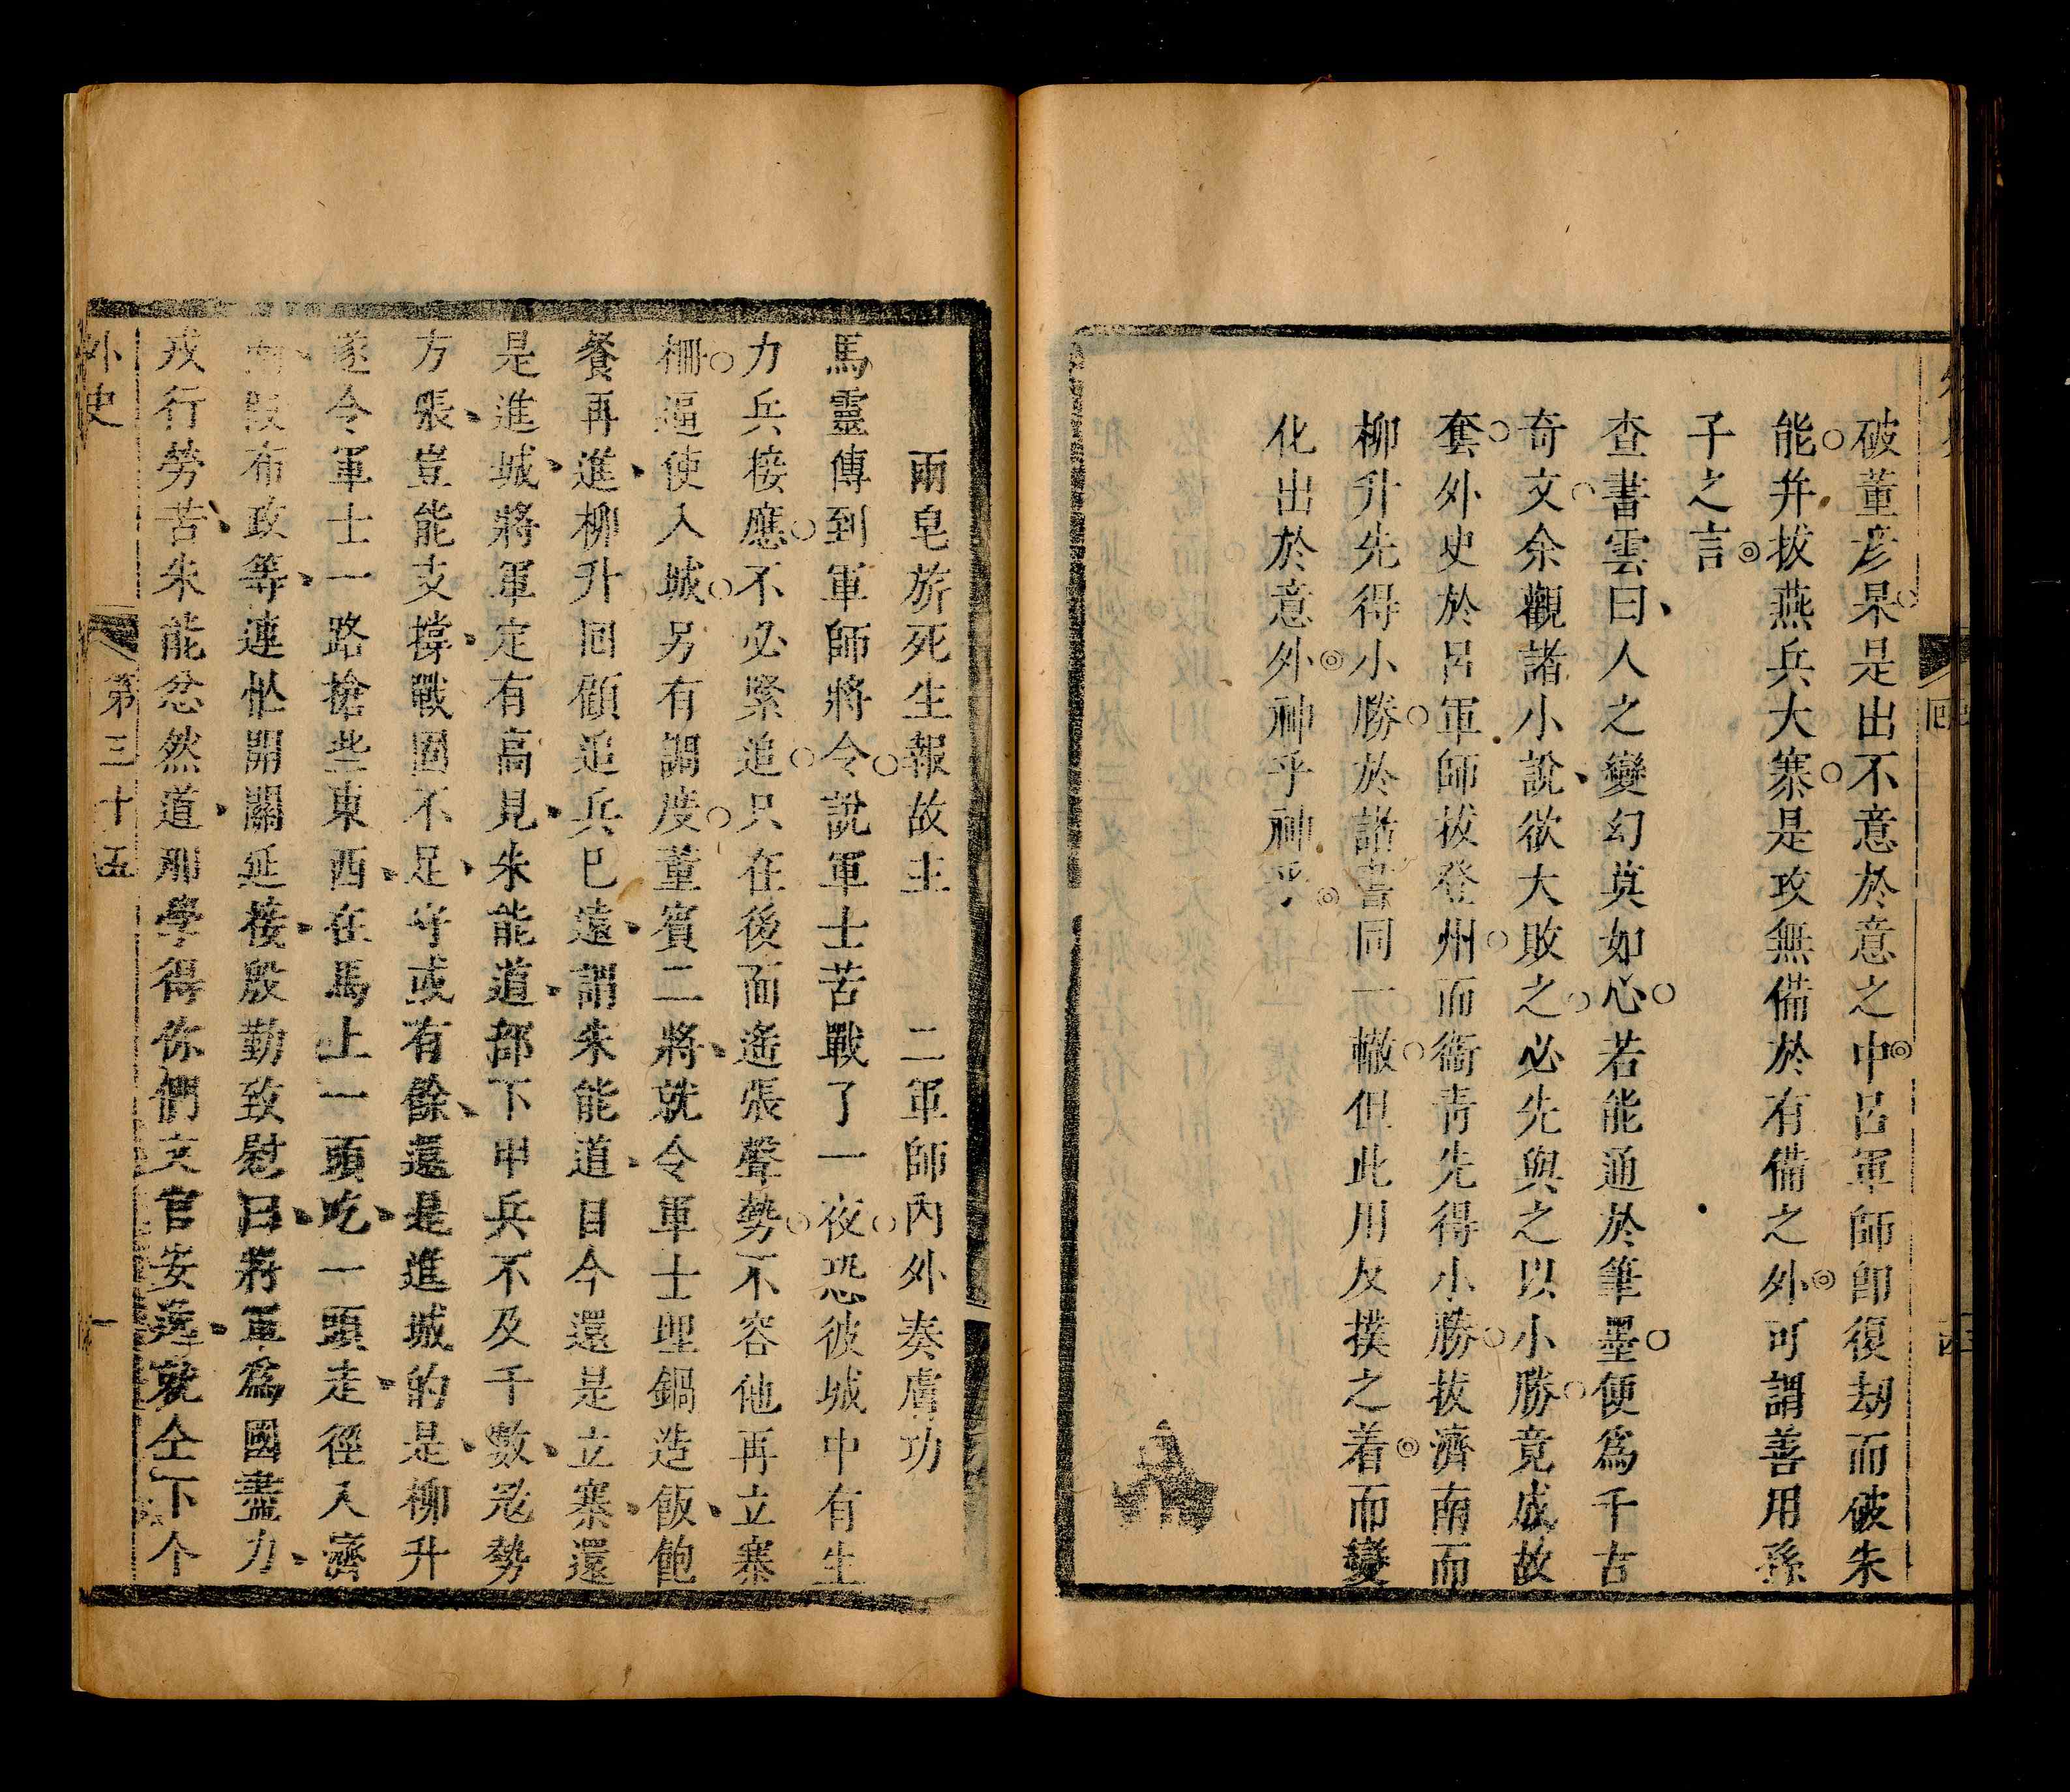 破董彦杲是出不意於意之中呂軍師卽復劫而破朱
能并拔燕兵大寨是攻無備於有備之外可謂善用孫
子之言
查書雲曰人之變幻莫如心若能通於筆墨便爲千古
奇文余觀諸小說欲大敗之必先與之以小勝竟成故
套外史於呂軍師拔登州而衞青先得小勝拔濟南而
柳升先得小勝於諸書同一轍但此用反撲之着而變
化出於意外神乎神乎
兩皂旂死生報故主　二軍師內外奏膚功
馬靈傳到軍師將令說軍士苦戰了一夜恐彼城中有生
力兵接應不必緊追只在後面遙張聲勢不容他再立寨
柵逼使入城另有調度董賓二將就令軍士埋鍋造飯飽
餐再進柳升回顧追兵已遠謂朱能道目今還是立寨還
是進城將軍定有高見朱能道部下甲兵不及千數寇勢
方張豈能支撐戰固不足守或有餘還是進城的是柳升
遂令軍士一路搶些東西在馬上一頭吃一頭走徑入濟
布政等連忙開關延接殷勤致慰曰將軍爲國盡力
戎行勞苦朱能忿然道那學得你們文官安逸就仝下个
外史　第三十五　一